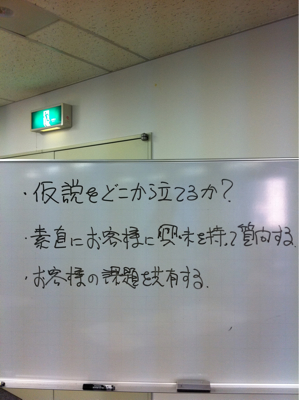 ・仮説をどこから立てるか?
・素直にお客様に興味を持って質問する
・お客様の課題を共有する.